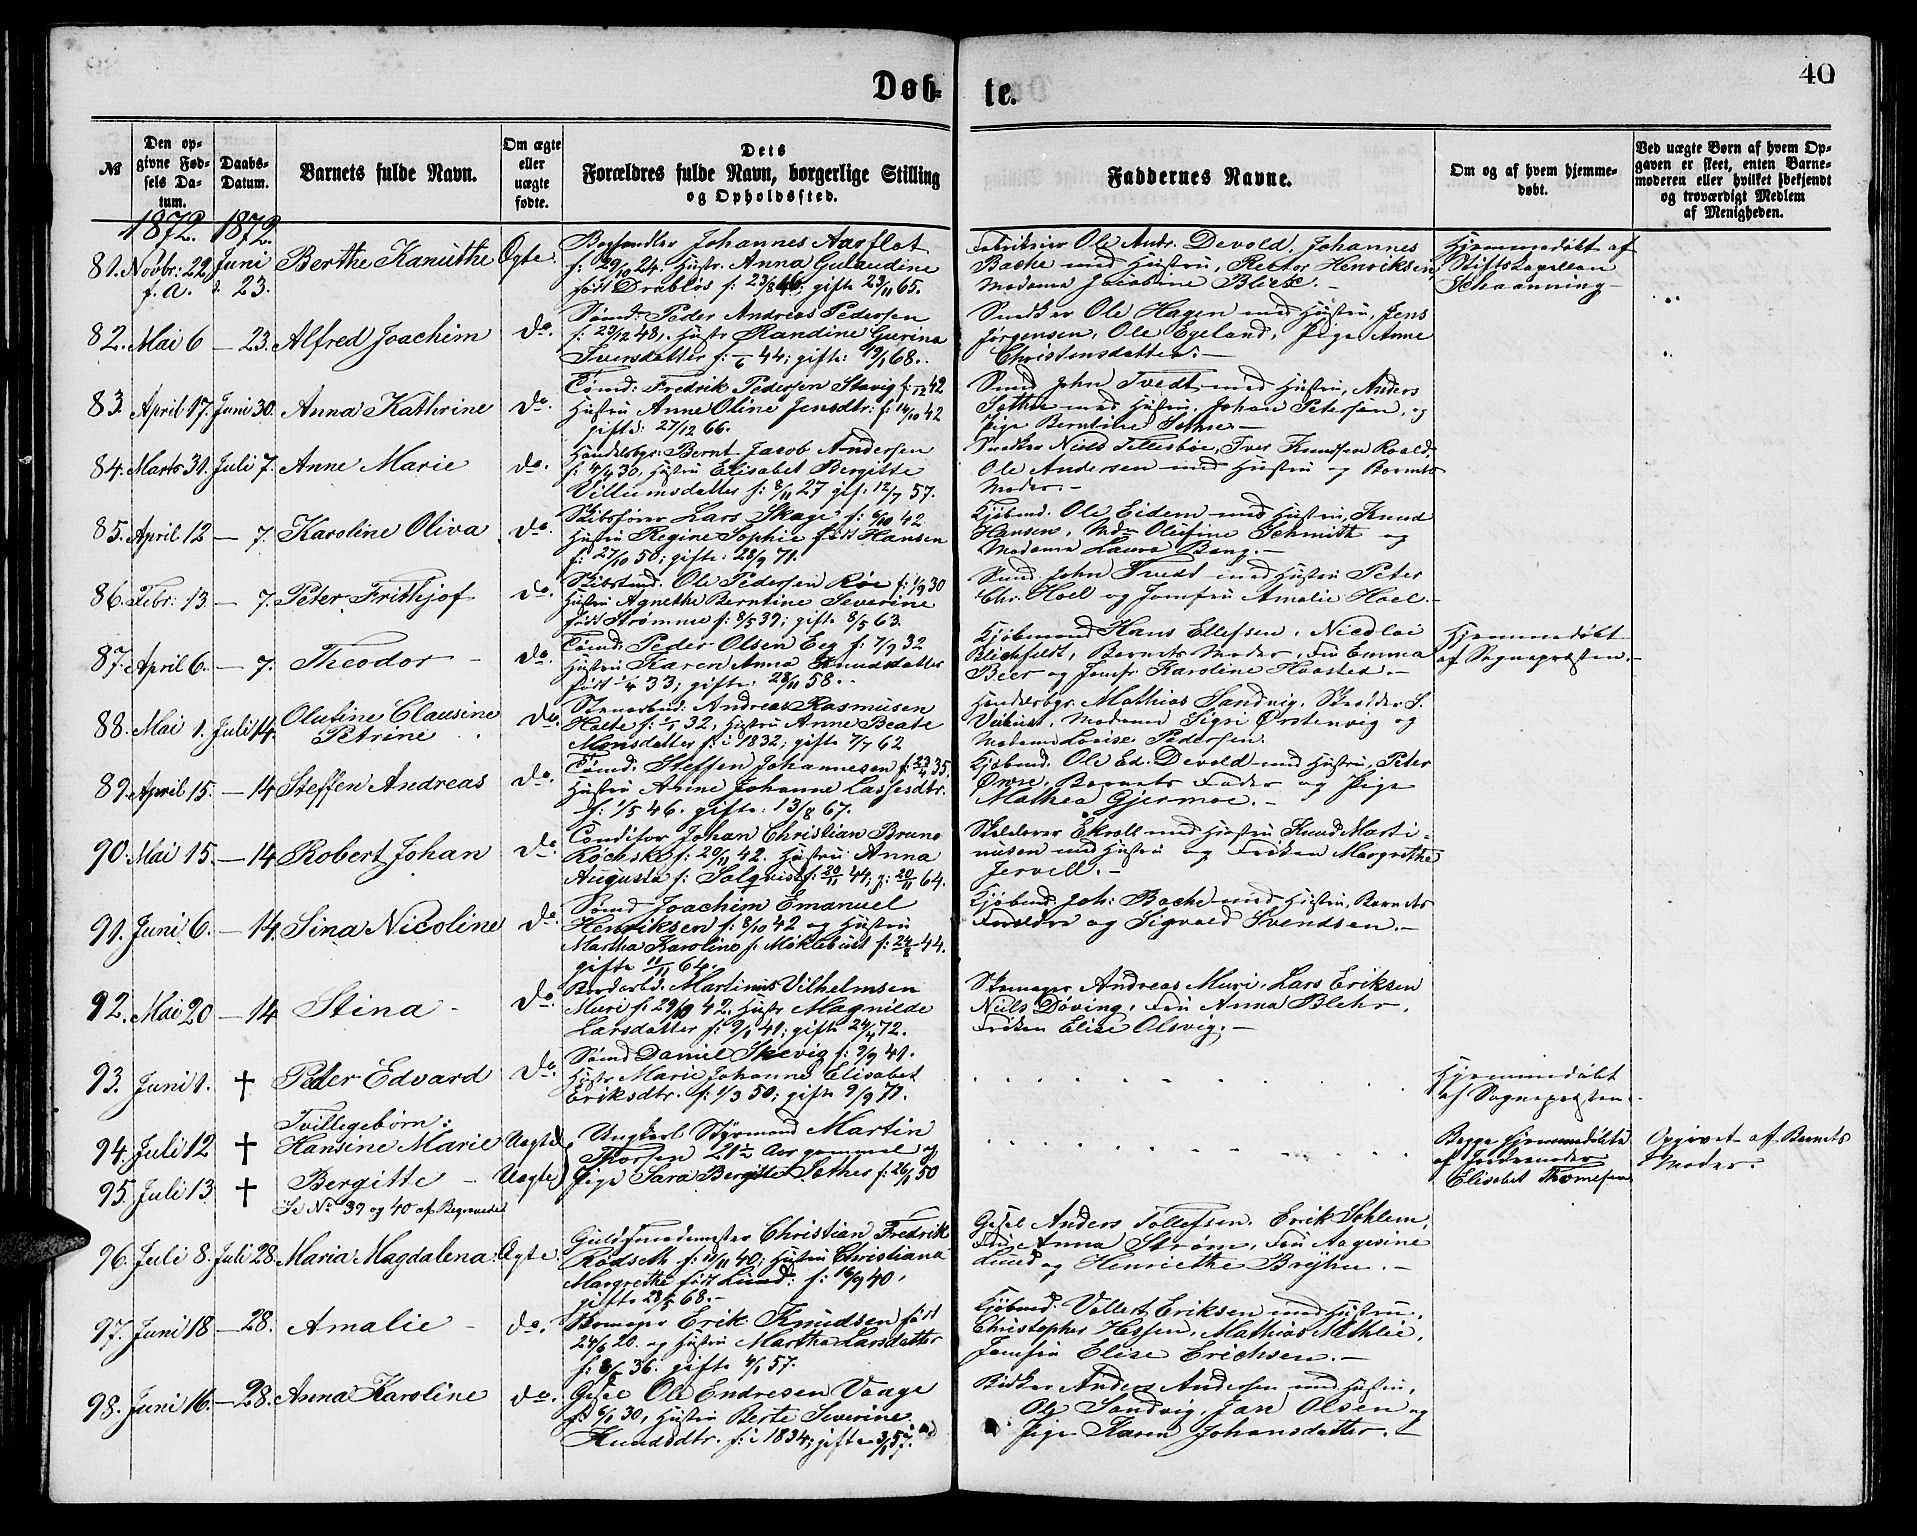 Døb-
te.
40
№
Den op-
givne Fød-
sels Da-
tum.
Daabs-
Datum.
Barnets fulde Navn.
Om ægte
eller
uægte
fødte.
Dets
Forældres fulde Navn, borgerlige Stilling
og Opholdssted.
Faddernes Navne.
Om og af hvem hjemme-
døbt.
Ved uægte Børn af hvem Op-
gaven er skeet, enten Barne-
moderen eller hvilket bekjendt
og troværdigt Medlem
af Menigheden.
1872. 1872.
81. Novbr: 22 f. A. Juni 23. Berthe Kanutthe Ægte.
Boghandler Johannes Aarflot
f: 29/10 24. Hustr. Anna Gulaudine
født Drabløs f: 23/8 46; gift 23/11 65.
Fabrikeier Ole Andr. Devold, Johannes
Bache med Hustru, Rector Henriksen
Madame Jacobine Blix.-
Hjemmedøbt af
Stiftskapellan
Schaanning
82. Mai 6 — 23. Alfred Joachim do.
Sømd: Peder Andreas Pedersen
f: 29/12 48, Hustr Randine Gurina
Iversdatter f: 44; gifte: 19/1 68.
Snedker Ole Hagen med Hustru, Jens
Jørgensen, Ole Egeland, Pige Anne
Christensdatter.-
83. April 17. Juni 30. Anna Kathrine do.
Tømd: Fredrik Pedersen Stavig f: 42
Hustru Anne Oline Jensdtr: f: 14/10 42
gifte: 27/12 66.
Smed John Tvedt med Hustru, Anders
Sothe med Hustru, Johan Petersen, og
Pige Berntine Sothe.-
84. Marts 31. Juli 7. Anne Marie do.
Handelsbgr. Bernt Jacob Andersen
f: 4/9 30. Hustru Elisabet Bergitte
Villumsdatter f: 8/11 27 gif: 12/7 57.
Snedker Niels Tillesbøe, Iver Knudsen Roald,
Ole Andersen med Hustru og Barnets
Moder.-
85. April 12 — 7. Karoline Oliva do.
Skibsfører Lars Skage f: 6/10 42
Hustru Regine Sophie født Hansen
f: 27/10 50; gifte: 28/9 71.
Kjøbmd. Ole Eidem med Hustru, Knud
Hansen, Mdm Olufine Schmith og
Madame Laura Bang.-
86. Febr: 13 — 7. Peter Frithjof do.
Skibstmd. Ole Pedersen Røe f: 1/9 30
Hustru Agnethe Berntine Severine
født Strømme f: 8/5 39; gifte 8/5 63.
Smed John Tvedt med Hustru Peter
Chr. Hoel og Jomfru Amalie Hoel.-
87. April 6. — 7. Theodor do.
Tømd: Peder Olsen Eeg f: 7/9 32
Hustru Karen Anna Knudsdatter
født 1/4 33; gifte: 28/11 58.
Kjøbmand Hans Ellefsen, Nicolai
Blichfeldt, Barnets Moder, Fru Emma
Beer og Jomfr. Karoline Haasted.-
Hjemmedøbt
af Sognepræsten.-
88. Mai 1. Juli 14. Olufine Clausine
Petrine do.
Stenarbmd: Andreas Rasmusen
Holte f: 32, Hustru Anne Beate
Monsdatter f: i 1832; gifte 7/7 62
Handelsbgr. Mathias Sandvig, Skrædder S.
Vikust, Madame Sigri Ørstenvig og
Madame Lovise Pedersen.
89. April 15. — 14 Steffen Andreas do.
Tømd: Steffen Johannesen f: 23/4 35.
Hustru Anne Johanne Lassesdtr.
f: 1/5 46. gifte: 13/8 67.
Kjøbmd. Ole Ed. Devold med Hustru, Peter
Øvre, Barnets Fader og Pige
Mathea Gjermoe.-
90. Mai 15. — 14 Robert Johan do.
Conditor Johan Christian Bruno
Rochsko f: 20/11 42. Hustru Anna
Augusta f: Solqvist f: 20/11 44; g: 20/11 64.
Skolelærer Ekroll med Hustru Knud Marti-
nusen med Hustru og Frøken Margrethe
Jervell.-
91. Juni 6. — 14. Sina Nicoline do.
Sømd Joachim Emanuel
Henriksen f: 8/10 42 og Hustru
Martha Karoline f: Møklebust f: 24/8 44.
gifte 11/11 64.
Kjøbmd. Joh: Bache med Hustru, Barnets
Forældre og Sigvald Svendsen.-
92. Mai 20 — 14 Stina do.
Bordarbd. Martinus Vilhelmsen
Muri f: 29/10 42. Hustr Magnilde
Larsdatter f: 9/1 41; gifte 24/4 72.
Skomager Andreas Muri, Lars Eriksen
Niels Døving, Fru Anna Blehr,
Frøken Elise Olsvig.-
93. Juni 1. † Peter Edvard do.
Sømd Daniel Skevig f: 9/9 41.
Hustr. Marie Johanne Elisabet
Eriksdtr. f: 1/3 50; gifte 9/9 71.
Hjemmedøbt
af Sognepræsten.
Tvillegebørn:
94. Juli 12 † Hansine Marie Uægte
95. Juli 13 † Bergitte Uægte
Se No 39 og 40 af Begravede
Ungkarl Styrmand Martin
Thorsen 21½ Aar gammel og
Pige Sara Bergitte Sothes f: 26/1 50
Begge hjemmedøbte
af Jordemoder
Elisabet Thomesen
Opgivet af Barnets
Moder.
96. Juli 8. Juli 28. Maria Magdalena Ægte.
Guldsmedmester Christian Fredrik
Rødseth f: 11/11 40; Hustru Christiana
Margrethe født Lund: f: 16/9 40,
gifte 28/5 68.-
Gesel Anders Tollefsen, Erik Sohlem,
Frue Anna Strøm, Fru Aagesine
Lund og Henriette Bryhn.-
97. Juni 18 — 28. Amalie do.
Skomager Erik Knudsen født
24/6 20. og Hustru Martha Larsdatter
f: 8/5 36. gifte 4/1 57.
Kjøbmd. Vollert Eriksen med Hustru,
Christopher Hessen, Mathias Methlie,
Jomfru Elise Erichsen.-
98. Juni 16. — 28. Anna Karoline do.
Gesel Ole Endresen Vaage
f: 6/1 30, Hustru Berte Severine
Knudsdtr. f: i 1834; gifte 3/1 57.
Bødker Anders Andersen med Hustru,
Ole Sandvig, Jan Olsen og
Pige Karen Johansdatter.-